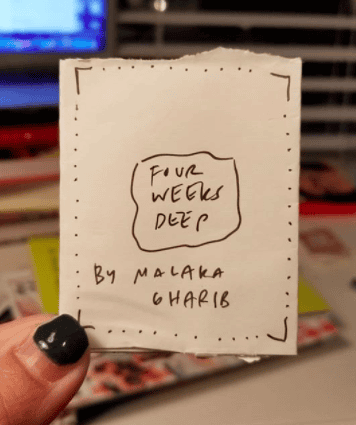 FOUR
WEEKS
DEEP
BY MALAKA
GHARIB